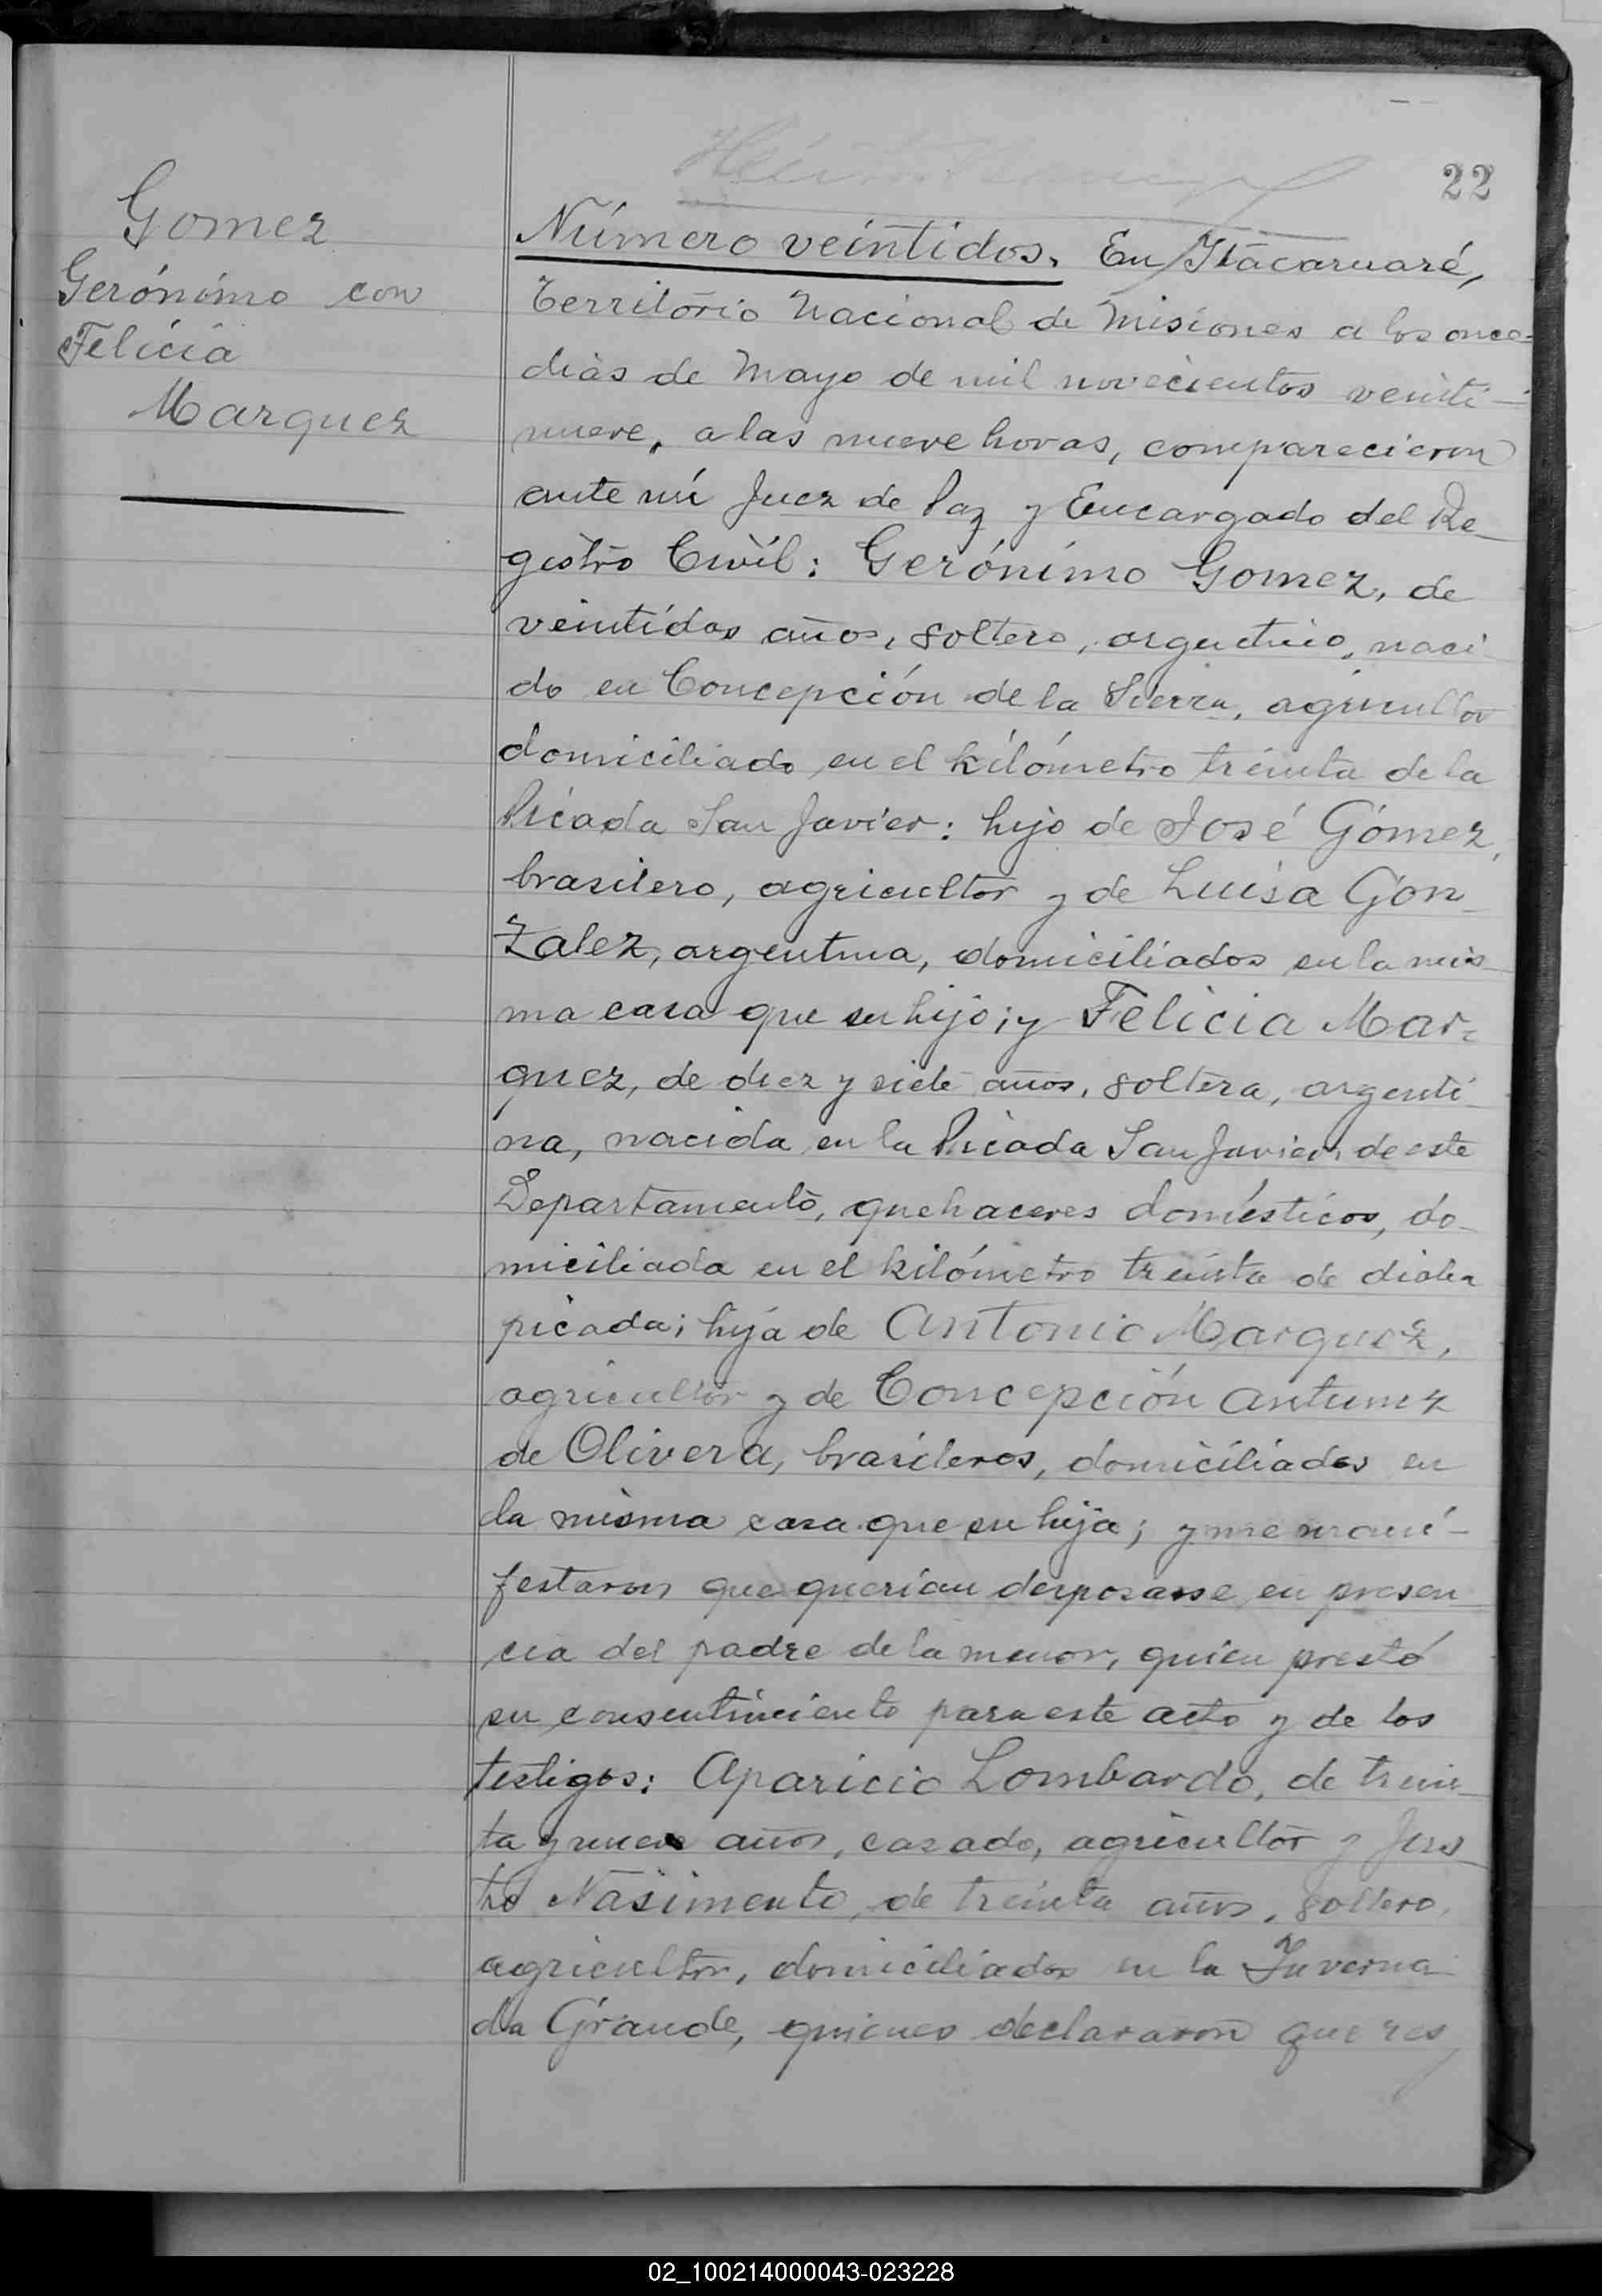 22
Gomez
Gerónimo con
Felicia
Marquez
Número veintidos. En Itacaruaré,
Territorio Nacional de Misiones a los once
dias de Mayo de mil novecientos veinti-
nueve, a las nueve horas, comparecieron
ante mi Juez de Paz y Encargado del Re-
gistro Civil: Gerónimo Gomez, de
veintidos años, soltero, argentino, naci-
do en Concepción de la Sierra, agricultor
domiciliado en el kilómetro treinta de la
Picada San Javier: hijo de José Gómez,
brasilero, agricultor y de Luisa Gon-
zalez, argentina, domiciliados en la mis-
ma casa que su hijo; y Felicia Mar-
quez, de diez y siete años, soltera, argenti-
na, nacida en la Picada San Javier, de este
Departamento, quehaceres domésticos, do-
miciliada en el kilómetro treinta de dicha
picada; hija de Antonio Marquez,
agricultor y de Concepción Antunez
de Olivera, brasileros, domiciliados en
la misma casa que su hija; y me mani-
festaron que querian desposarse en presen
cia del padre de la menor, quien prestó
su consentimiento para este acto y de los
testigos: Aparicio Lombardo, de trein-
ta y nueve años, casado, agricultor y Jus-
to Nasimento, de treinta años, soltero,
agricultor, domiciliados en la Inverna-
da Grande, quienes declararon que res
02_100214000043-023228